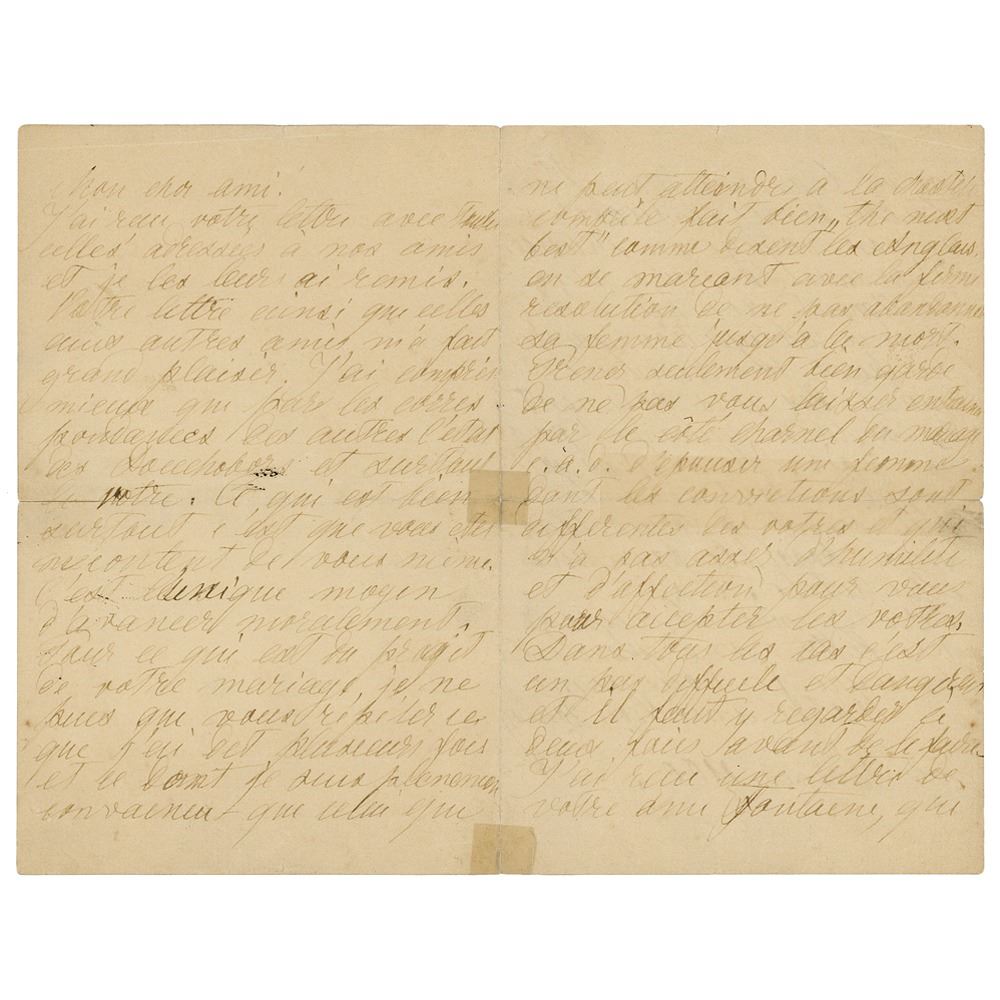 Mon cher ami!
J'ai reçu votre lettre avec toutes
celles adressées à nos amis
et je les leurs ai remis.
Votre lettre ainsi que celles
aux autres amis m'a fait
grand plaisir. J'ai compris
mieux que par les corres
pondances des autres l'état
des Doechobors et surtout
le votre. Ce qui est bien
surtout c'est que vous êtes
mécontent de vous même.
C'est l'unique moyen
d'avancer moralement.
Pour ce qui est du projet
de votre mariage, je ne
puis que vous répéter ce
que j'ai dit plusieurs fois
et ce dont je suis pleinement
convaincu – que celui qui
ne peut atteindre à la chasteté
complète fait bien „the next
best" comme disent les Anglais,
en se mariant avec la ferme
resolution de ne pas abandonner
sa femme jusqu'à la mort.
Prenez seulement bien garde
de ne pas vous laisser entrainer
par le côté charnel du mariage
c. à. d. d'épouser une femme
dont les convictions sont
différentes des votres et qui
n'a pas assez d'humilité
et d'affection pour vous
pour accepter les votres.
Dans tous les cas c'est
un pas difficile et dangereux
et il faut y regarder à
deux fois avant de le faire.
J'ai reçu une lettre de
votre ami Fontaine, qui